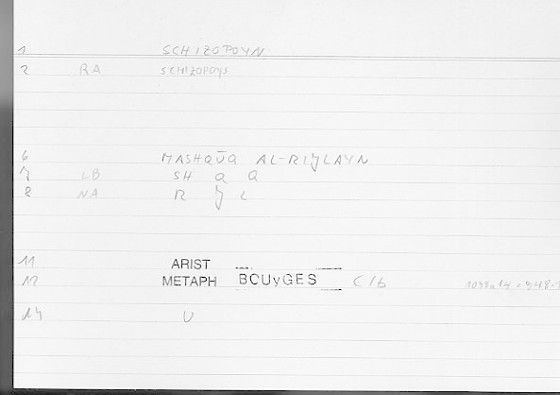 1 SCHIZOPOYN
2 RA SCHIZOPOYS
6 MASHQŪQ AL-RIǦLAYN
7 LB SH Q Q
8 NA R Ǧ L
11 ARIST
12 METAPH BOUyGES C16
14 U